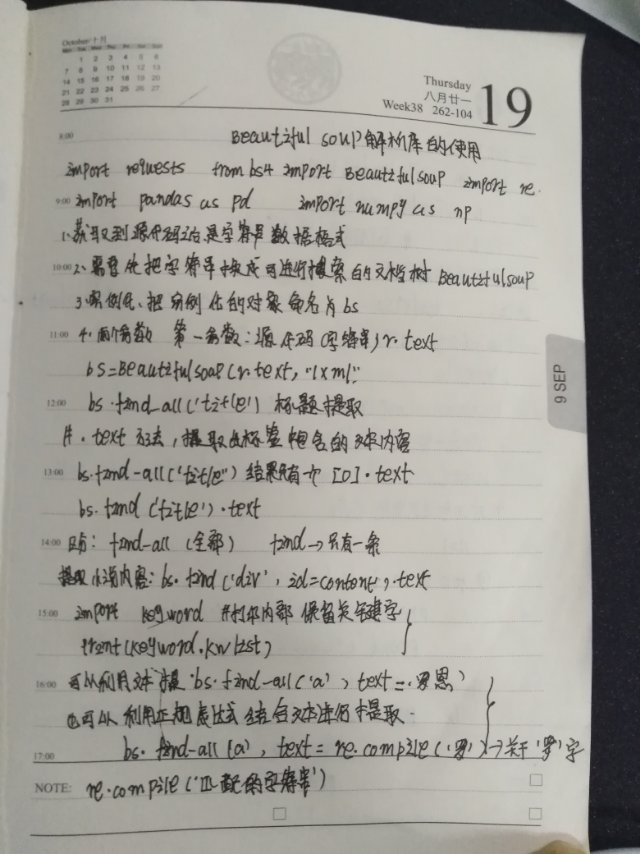 October/十月
Mon Tue Wed Thu Fri Sat Sun
1 2 3 4 5 6
7 8 9 10 11 12 13
14 15 16 17 18 19 20
21 22 23 24 25 26 27
28 29 30 31
Thursday
八月廿一
Week38 262-104
19
8:00
Beautiful soup解析库的使用
import requests from bs4 import Beautifulsoup import re
9:00 import pandas as pd import numpy as np
1、获取到源代码后是字符串数据格式
10:00 2、需要先把字符串换成可进行搜索的文档树 Beautifulsoup
3、实例化、把实例化的对象命名为bs
11:00 4、两个参数 第一参数:源代码(字符串)r.text
bs=Beautifulsoup(r.text,"lxml"
12:00 bs.find_all('title') 标题提取
#.text方法,提取出标签中包含的文本内容
13:00 bs.find-all('title') 结果只有一个 [0].text
bs.find('title').text
14:00 区别: find-all (全部) find→只有一条
提取小说内容: bs.find('div', id=content).text
15:00 import keyword #打印内部保留关键字
print(keyword.kwlist)
16:00 可以利用文本 bs.find-all('a', text=罗恩')
也可以利用正则表达式结合文本进行提取.
17:00 bs.find-all(a', text=re.compile('罗')→关于'罗'字
NOTE: re.compile('匹配的字符串')
9 SEP